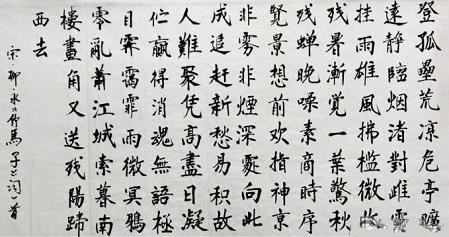 登孤壘荒凉危亭曠
遠静臨烟渚對雌霓
挂雨雄風拂槛微收
残暑漸覺一葉驚秋
残蝉晚噪素商時序
覽景想前欢指神京
非雾非煙深處向此
成追赶新愁易积故
人難聚凭高盡日凝
伫贏得消魂無語極
目霽靄霏雨微冥鴉
零亂蕭江城索暮南
樓畫角又送残陽蹄
西去
宋柳永竹馬子之词一首